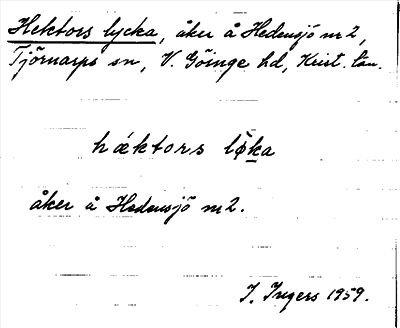 Hektors lycka, åker å Hedensjö nr 2,
Tjörnarps sn, V. Göinge hd, Krist. län.
hæktors lø̀ka
åker å Hedensjö nr 2.
I. Ingers 1959.